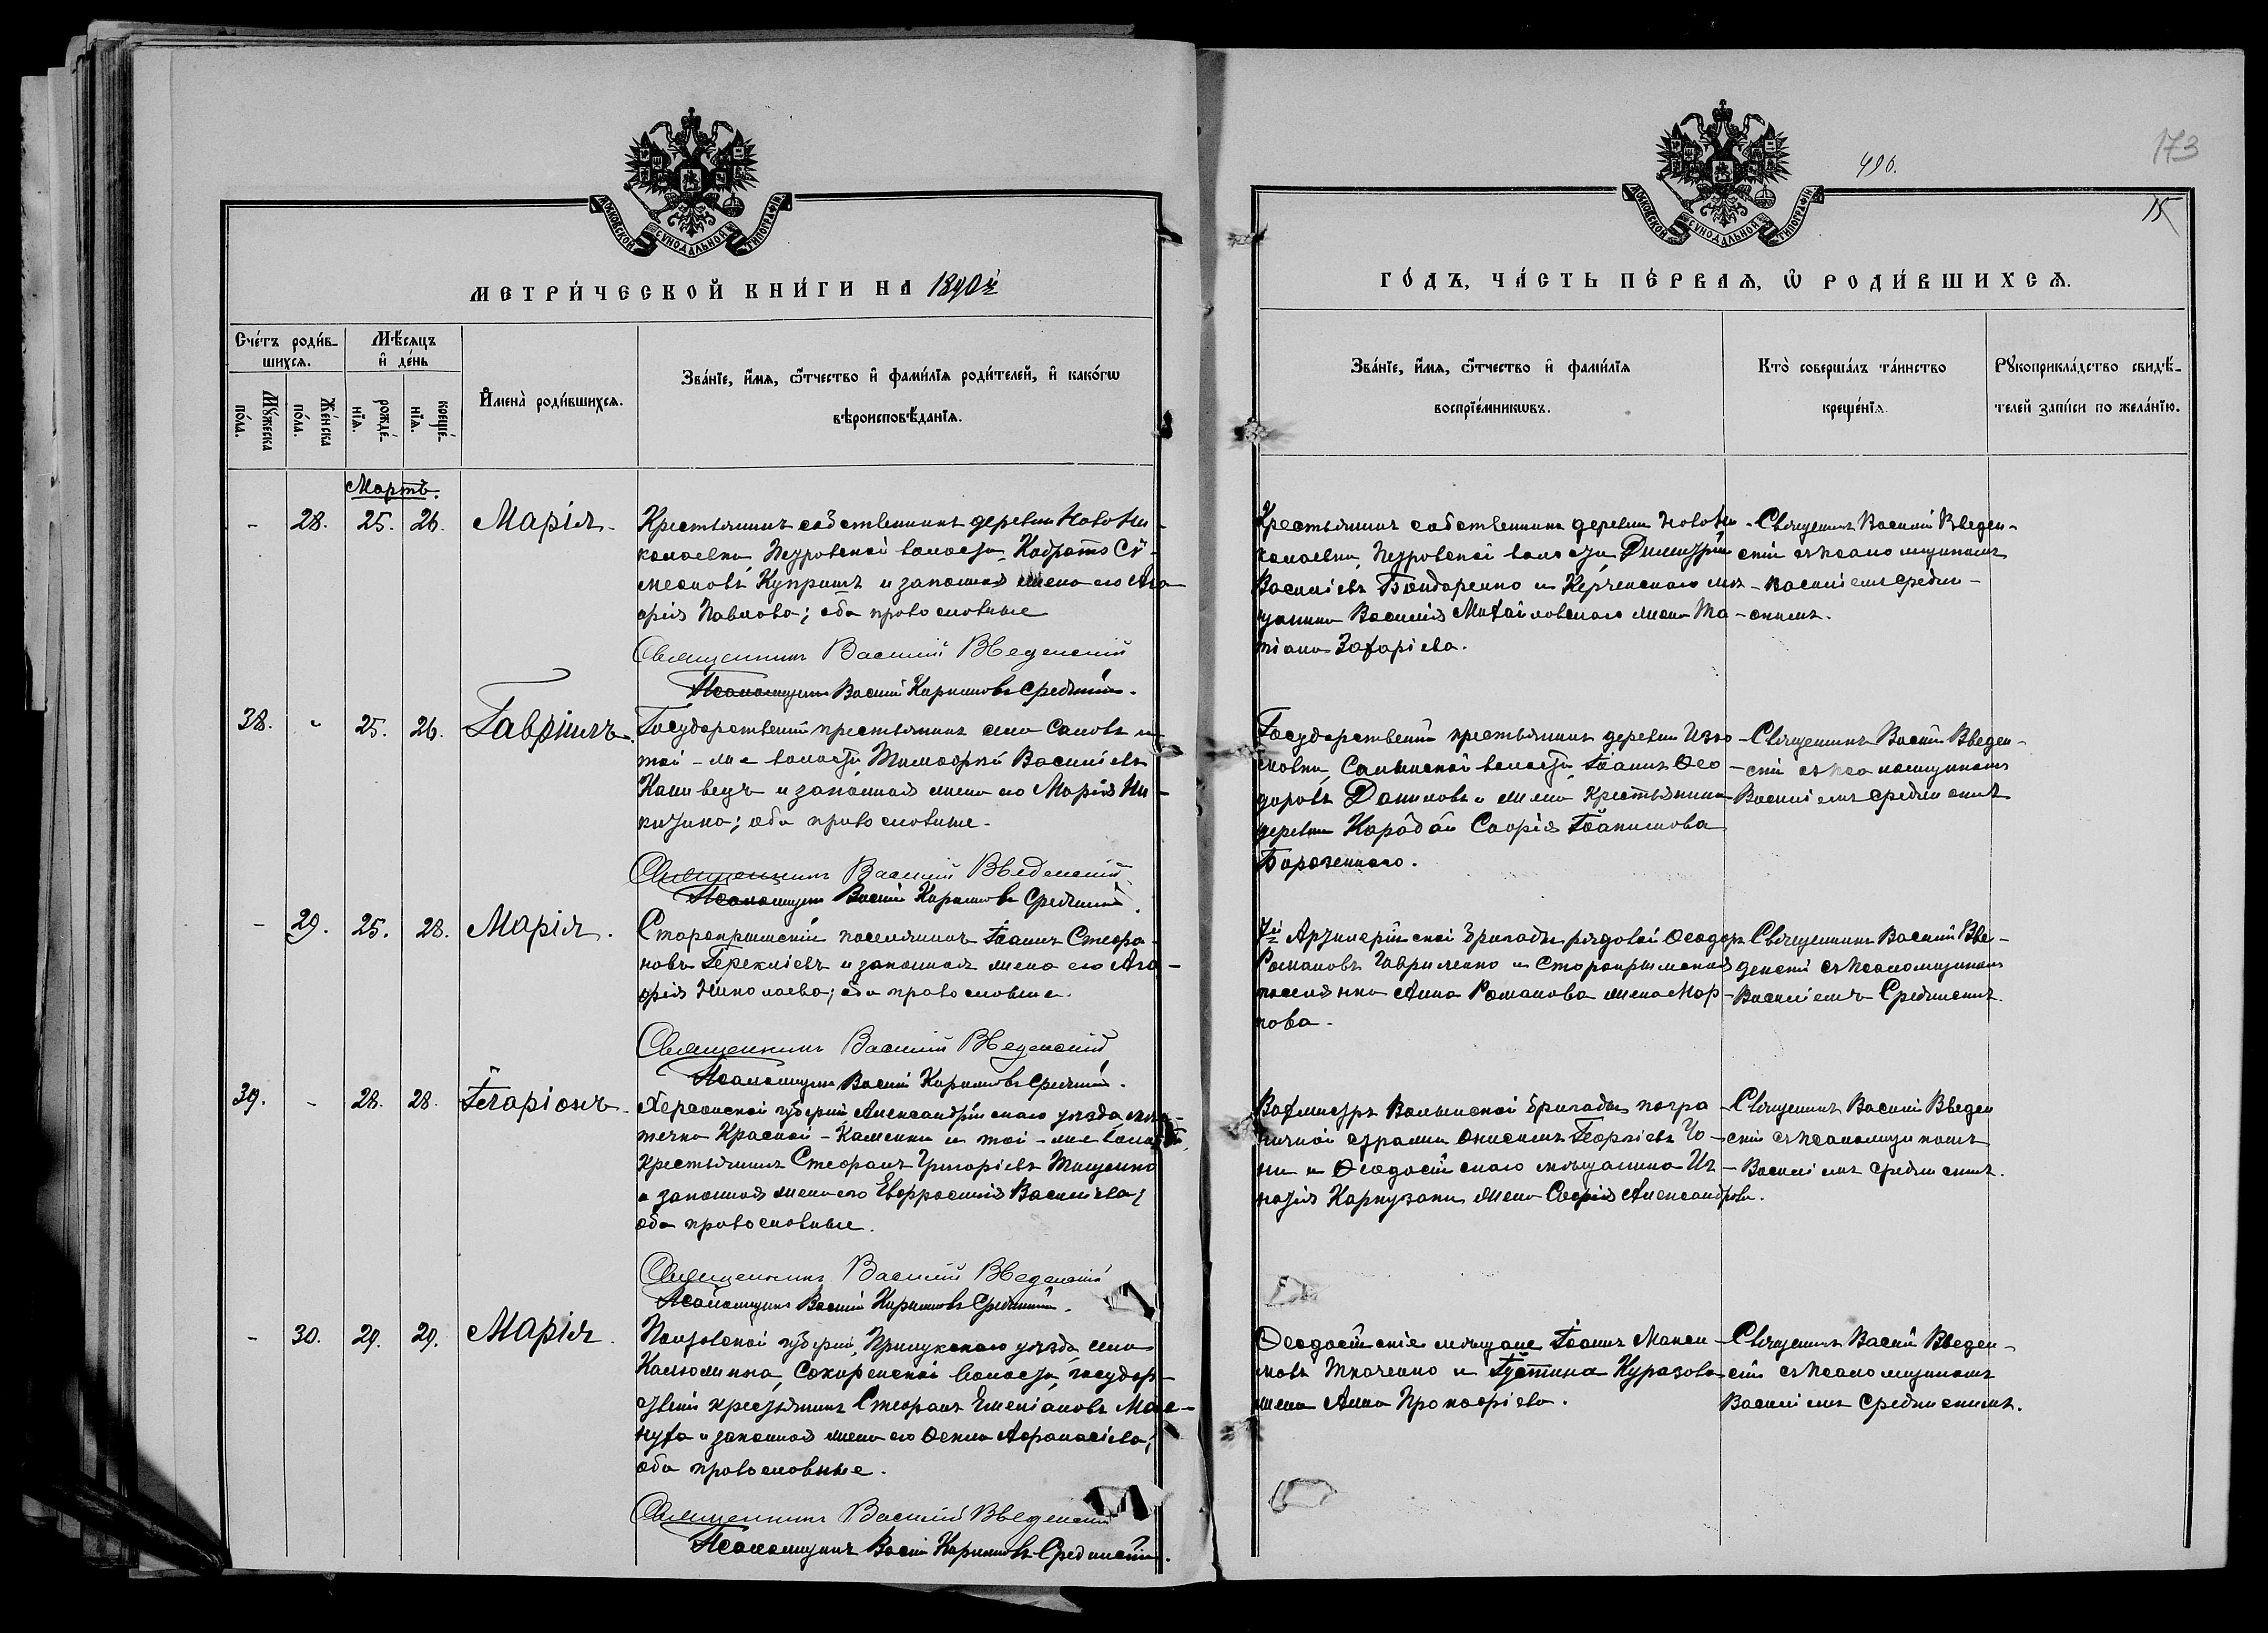 МОСКОВСКОЙ СУНОДАЛЬНОЙ ТИПОГРАФІИ
МЕТРИ́ЧЕСКОЙ КНИ́ГИ НА 1890й
Сче́тъ роди́в-
шихся.
Мѣ́сяцъ
и҆ де́нь
Мꙋ́жеска
по́ла.
Же́нска
по́ла.
рожде́-
нїѧ.
креще́-
нїѧ.
И҆мена̀ роди́вшихсѧ.
Зва́нїе, и҆́мѧ, ѻ҆́тчество и҆ фами́лїѧ роди́телей, и҆ како́гѡ
вѣроисповѣ́данїѧ.
Мартъ.
- 28. 25. 26. Марія.
Крестьянинъ собственникъ деревни Ново Ни-
колаевки, Петровской волости, Кодратъ Си-
меоновъ Купришъ и законная жена его Ага-
фія Павлова; оба православные
Священникъ Василій Введенскій
Псаломщикъ Василій Кирилловъ Срединскій.
38. - 25. 26. Гавріилъ.
Государственный крестьянинъ села
той-же волости, Тимофей Васильевъ
и законная жена его Марія Ни-
китина; оба православные.
Священникъ Василій Введенскій
Псаломщикъ Василій Кирилловъ Срединскій.
- 29. 25. 28. Марія.
Старокрымскій поселянинъ Іоаннъ Стефа-
новъ Гераклієвъ и законная жена его Ага-
фія Николаева; оба православные.
Священникъ Василій Введенскій
Псаломщикъ Василій Кирилловъ Срединскій.
39. - 28. 28. Іларіонъ.
Херсонской губерніи Александрійскаго уѣзда мѣс-
течка Красной-Каменки и той-же волости
крестьянинъ Стефанъ Григорьевъ Тищенко
и законная жена его Евфросинія Васильева;
оба православные.
Священникъ Василій Введенскій
Псаломщикъ Василій Кирилловъ Срединскій.
- 30. 29. 29. Марія.
Полтавской губерніи, Прилукскаго уѣзда, села
Калюжинца, Сокиренской волости, государ-
ственный крестьянинъ Стефанъ Емеліановъ Мас-
нуха и законная жена его Ѳекла Афанасіева;
оба православные.
Священникъ Василій Введенскій
Псаломщикъ Василій Кирилловъ Срединскій.
173
490.
15
МОСКОВСКОЙ СУНОДАЛЬНОЙ ТИПОГРАФІИ
ГО́ДЪ, ЧА́СТЬ ПЕ́РВАѦ, Ѡ҆ РОДИ́ВШИХСѦ.
Зва́нїе, и҆́мѧ, ѻ҆́тчество и҆ фами́лїѧ
воспрїе́мникѡвъ.
Кто̀ соверша́лъ та́инство
креще́нїѧ.
Рꙋкоприкла́дство свидѣ́-
телей за́писи по жела́нїю.
Крестьянинъ собственникъ деревни Ново Ни-
колаевки, Петровской волости, Димитрій
Васильевъ Бондаренко и Керченскаго мѣ-
щанина Василія Михайловскаго жена Та-
тіана Захаріева.
Священникъ Василій Введен-
скій съ псаломщикомъ
Василіемъ Средин-
скимъ.
Государственный крестьянинъ деревни
волости, Іоаннъ Ѳео-
доровъ Даниловъ и жена крестьянина
деревни Карабай Софія Іоанникова
Священникъ Василій Введен-
скій съ псаломщикомъ
Василіемъ Срединскимъ
7й Артилерійской бригады рядовой Ѳеодоръ
Романовъ Гавриленко и Старокрымская
поселянка Анна Романова жена Мар-
кова.
Священникъ Василій Вве-
денскій съ псаломщикомъ
Василіемъ Срединскимъ.
Вахмистръ Волынской бригады погра-
ничной стражи Онисимъ Георгіевъ Чо-
ни и Ѳеодосійскаго мѣщанина Иг-
натія Каркузаки жена Софія Александрова.
Священникъ Василій Введен
скій съ псаломщикомъ
Василіемъ Срединскимъ.
Ѳеодосійскіе мѣщане Іоаннъ Макси-
мовъ Ткаченко и Іустина Куразова
жена Анна Прокофіева.
Священникъ Василій Введен-
скій съ псаломщикомъ
Василіемъ Срединскимъ.